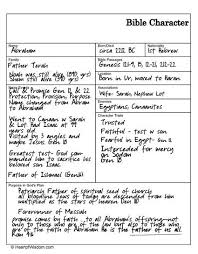 Bible Character
Name
Abraham
Born/Died
circa 2211 BC
Nationality
1st Hebrew
Family
Father Terah
Noah was still alive
Bible Passages
Genesis
Location
Born in Ur, moved to Haran
Call & Promise Gen
Protection, Promise, Purpose
Name changed from Abram
to Abraham
Associations
Wife: Sarah, Nephew Lot
Enemies
Egyptians, Canaanites
Went to Canaan w Sarah
& Lot Had Isaac at 99
years old
Visited by 3 angels and
maybe Jesus Gen 18
Character Traits
Trusted
Faithful - test w son
Faithful to go from Egypt - Gen 12
Interceded for mercy
on Sodom
Gen 18
Greatest test- God com-
manded him to sacrifice
his beloved son Isaac.
Father of Ishmael (Gen16)
Purpose in God's Plan
Patriarch Father of spiritual seed of church
all bloodline Jews of today are descended from him
through Isaac.
Forerunner of Messiah
promise comes by faith... to all Abraham's offspring-not
only to those who are of the law but also to those who
are of the faith of Abraham. He is the father of us all
Rom 4:16
© HeartofWisdom.com